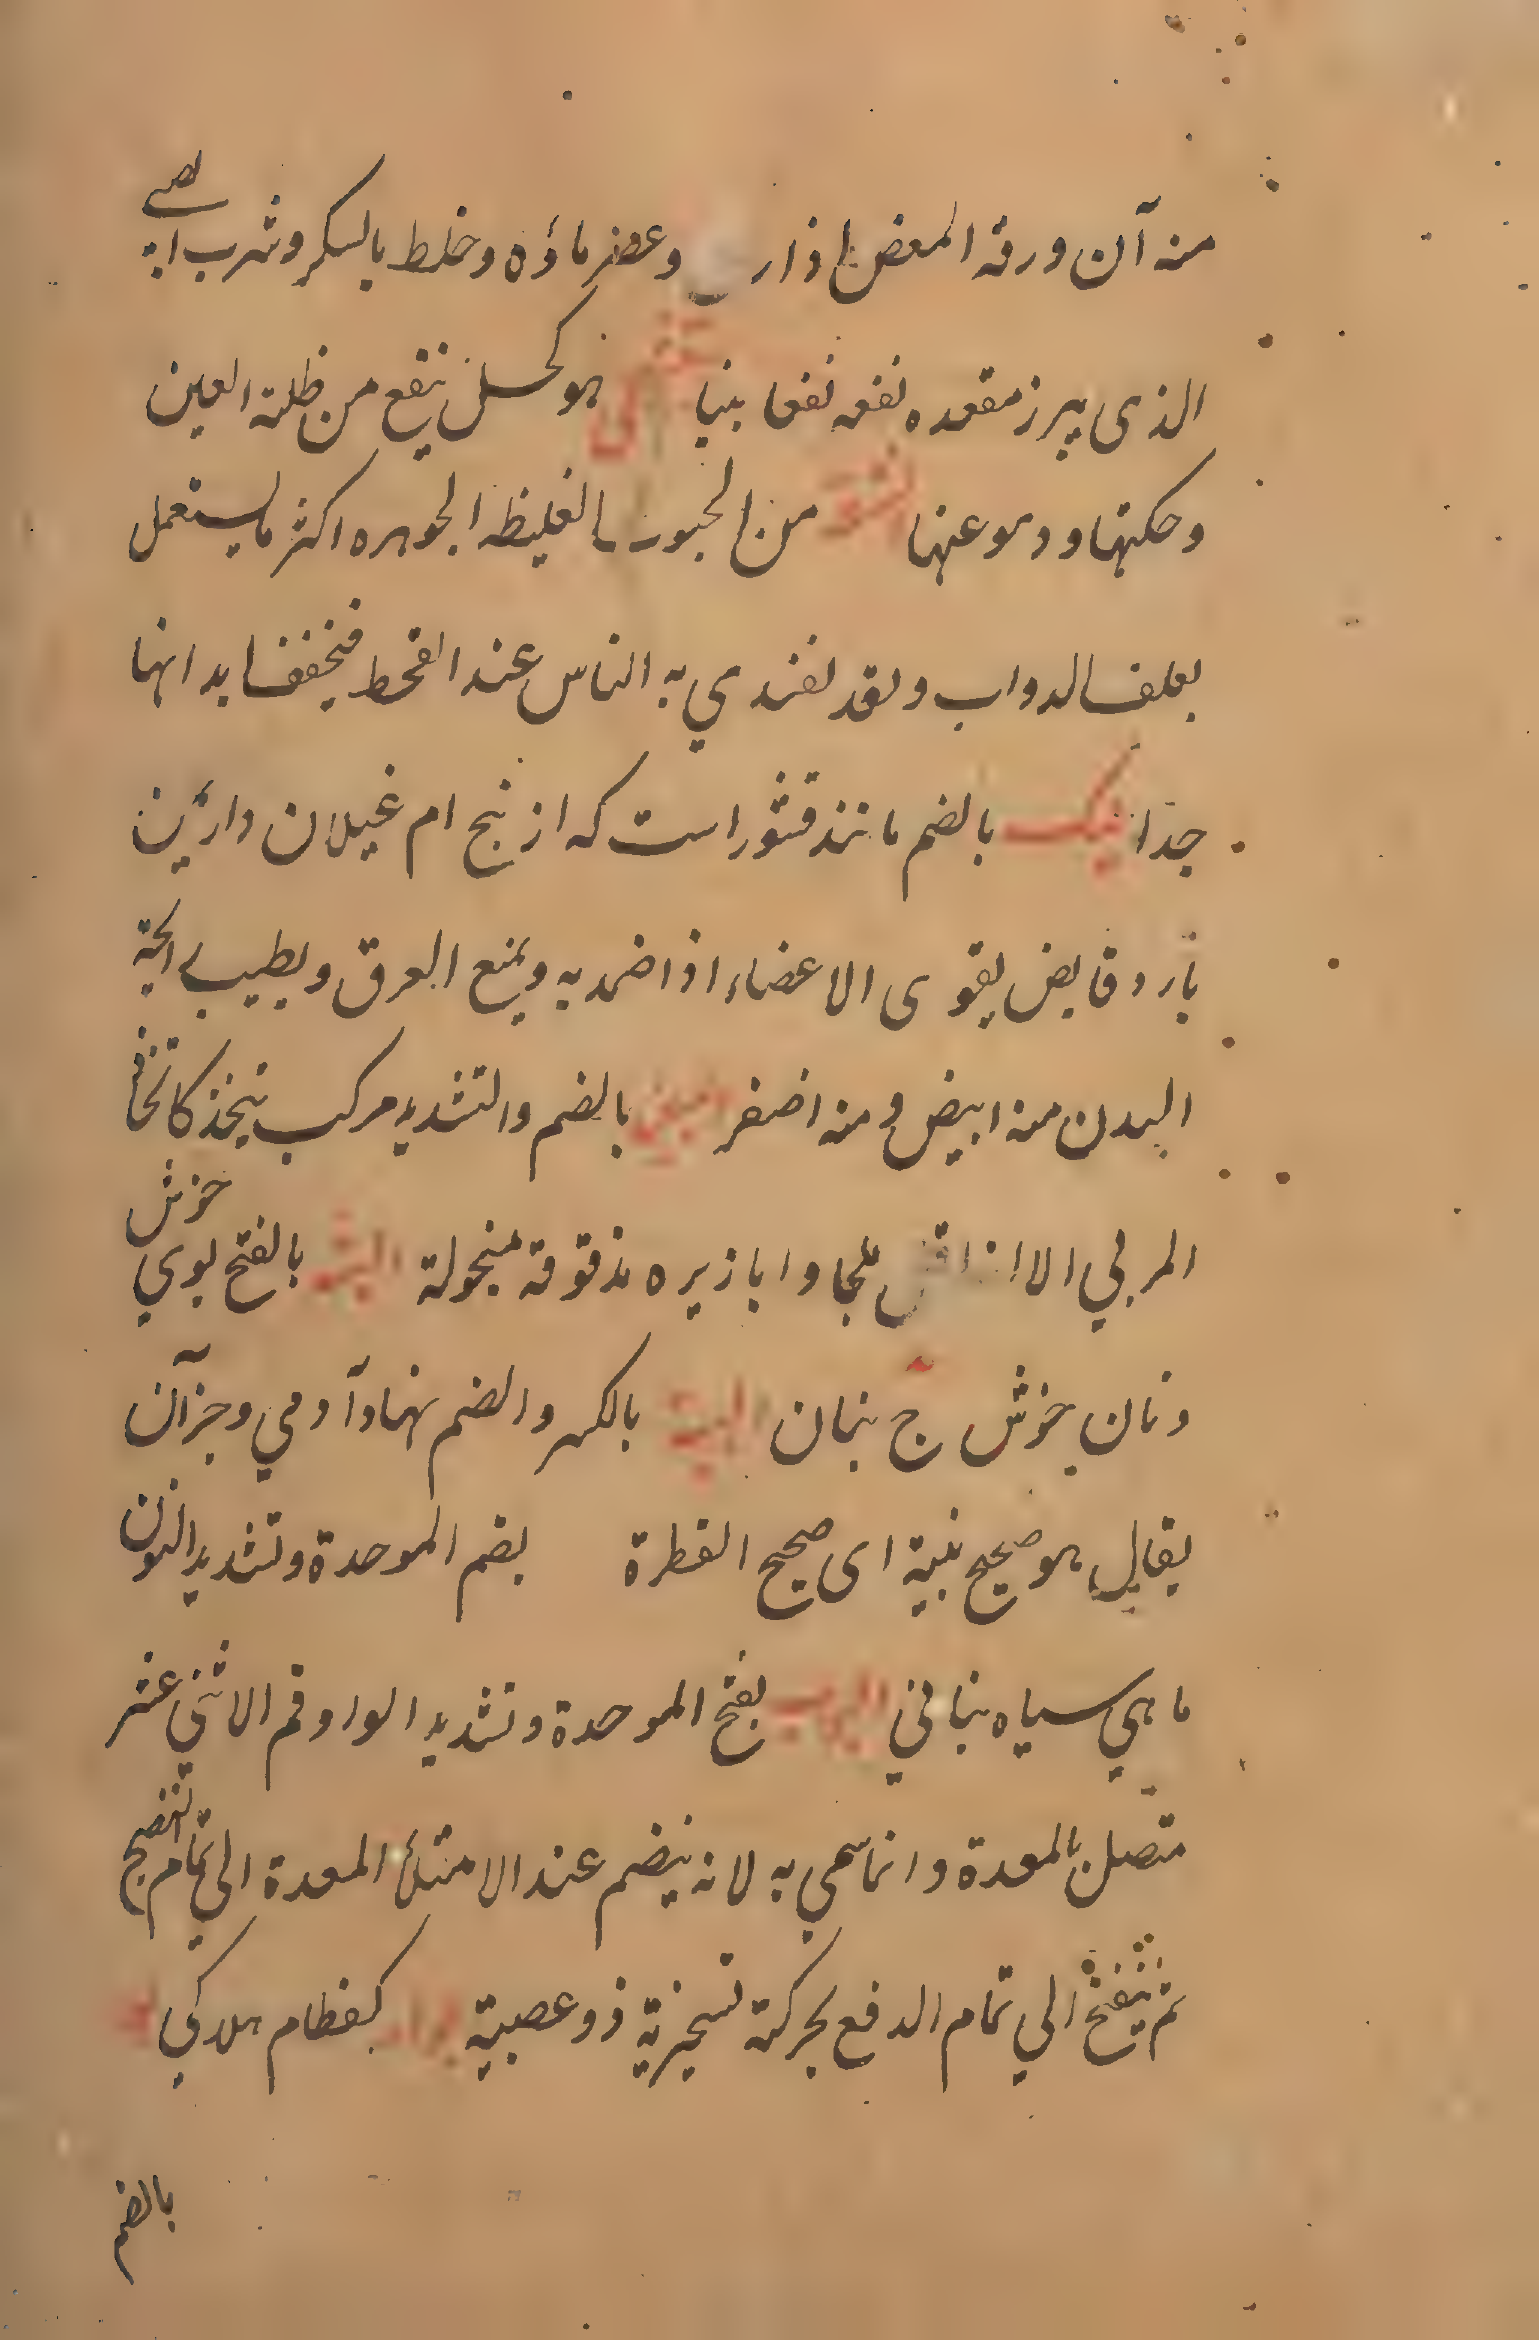 منه آن ورقه الغض اذا وعصر ماؤه وخلط بالسكر وشرب ابه لصبي
الذى يبرز مقعده نفعه نفعا بينا هو كحل ينفع من ظلمة العين
وحكتها ودموعها من الحبوب الغليظه الجوهره اكثر ما يستعمل
بعلف الدواب ولقد لغتدي به الناس عند القحط فيخفف ابدانها
جدا بنك بالضم مانند قشور است كه از بيخ ام غيلان دارين
بارد قابض يقوى الاعضاء اذا ضمد به ويمنع العرق ويطيب رايحة
البدن منه ابيض ومنه اصفر بالضم والتشديد مركب يتخذ كاتخاذ
المربي الا ملحا وابازيره مدقوقة منخولة البنة بالفتح بوي خوش
ونان خوش ج بنان البنية بالكسر والضم نهاد آدمي وجز آن
يقال هو صحيح بنية اى صحيح الفطرة بضم الموحدة وتشديد النون
ماهي سياه بناني البواب بفتح الموحدة وتشديد الواو فم الاثني عشر
متصل بالمعدة وانما سمي به لانه ينضم عند الامتلأ المعدة الي تمام النضج
ثم ينفتح الي تمام الدفع بحركة تسخيرية ذو عصبية بوار كغظام هلاكي
بالضم